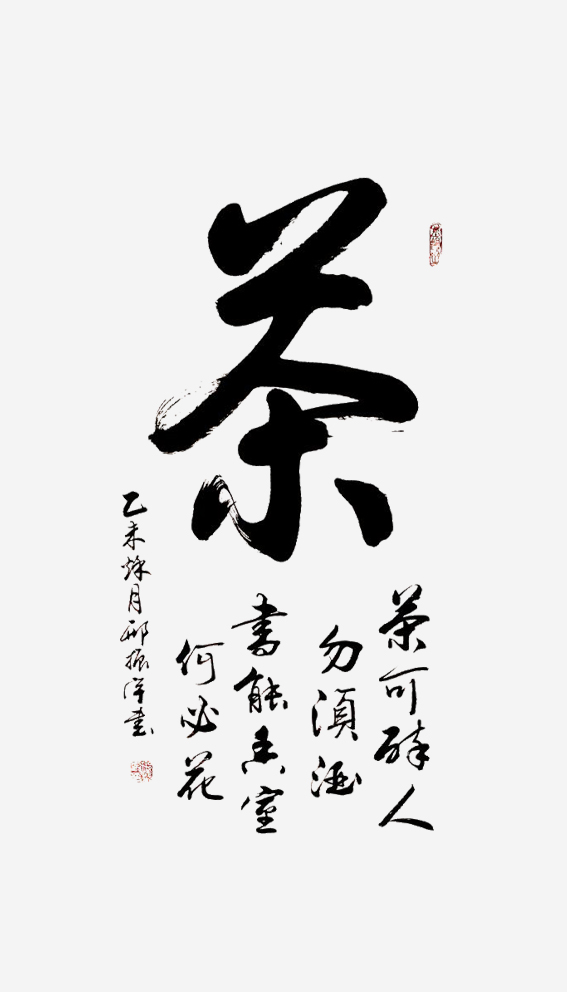 茶
茶可醉人
勿須酒
書能香室
何必花
乙未秋月邢振洋書